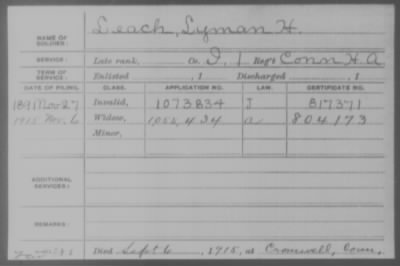 NAME OF SOLDIER: Leach, Lyman H.
SERVICE: Late rank, Co. I, 1 Reg't Conn H. A.
TERM OF SERVICE: Enlisted , 1 Discharged , 1
DATE OF FILING. CLASS. APPLICATION NO. LAW. CERTIFICATE NO.
1891 Nov 27 Invalid, 1073834 J 817371
1915 Nov. 6 Widow, 1055,434 a 804,173
Minor,
ADDITIONAL SERVICES:
REMARKS:
Died Sept 6, 1915, at Cromwell, Conn.